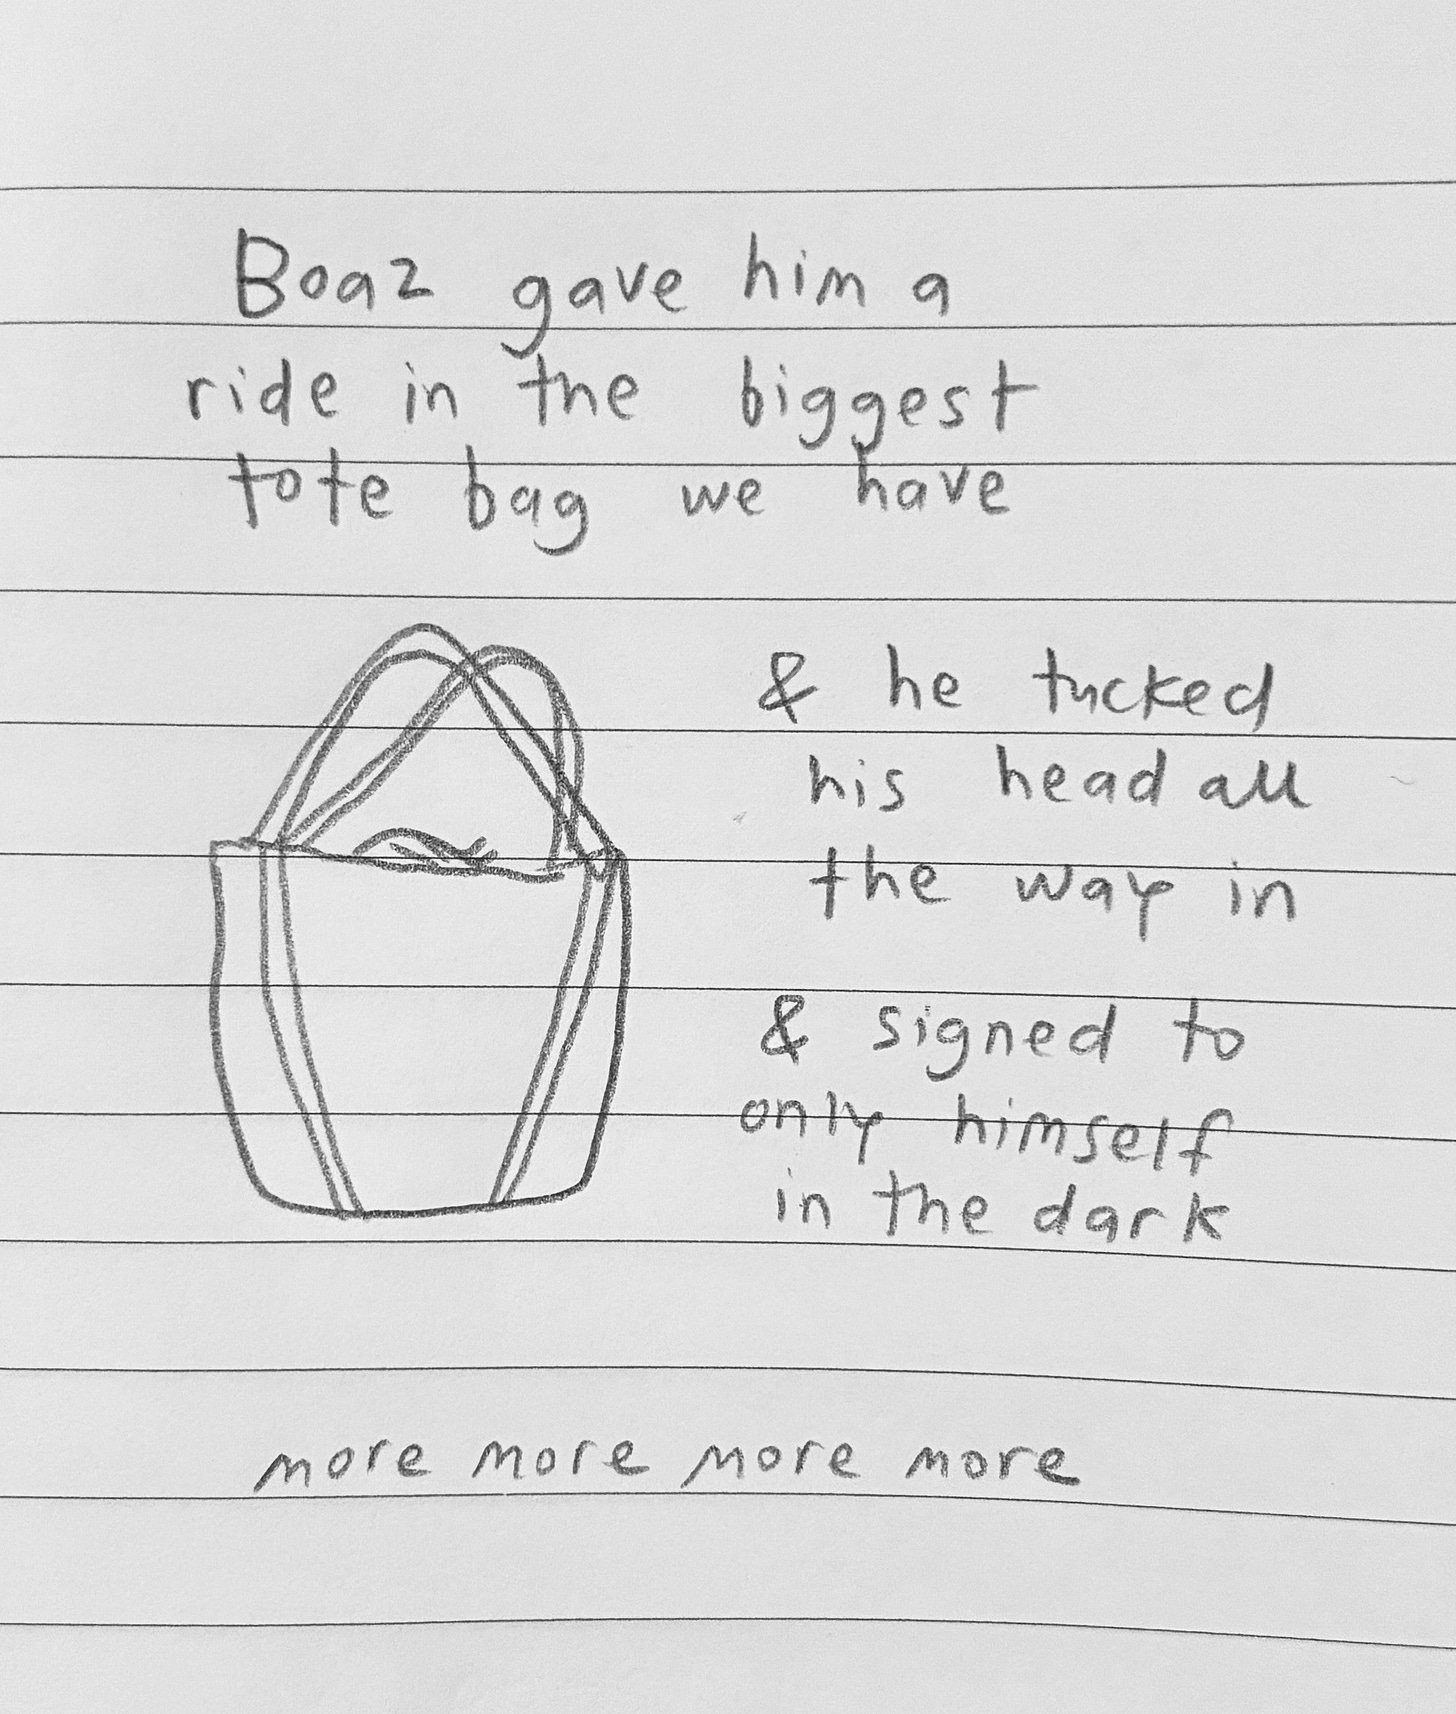 Boaz gave him a
ride in the biggest
tote bag we have
& he tucked
his head all
the way in
& signed to
only himself
in the dark
more more more more